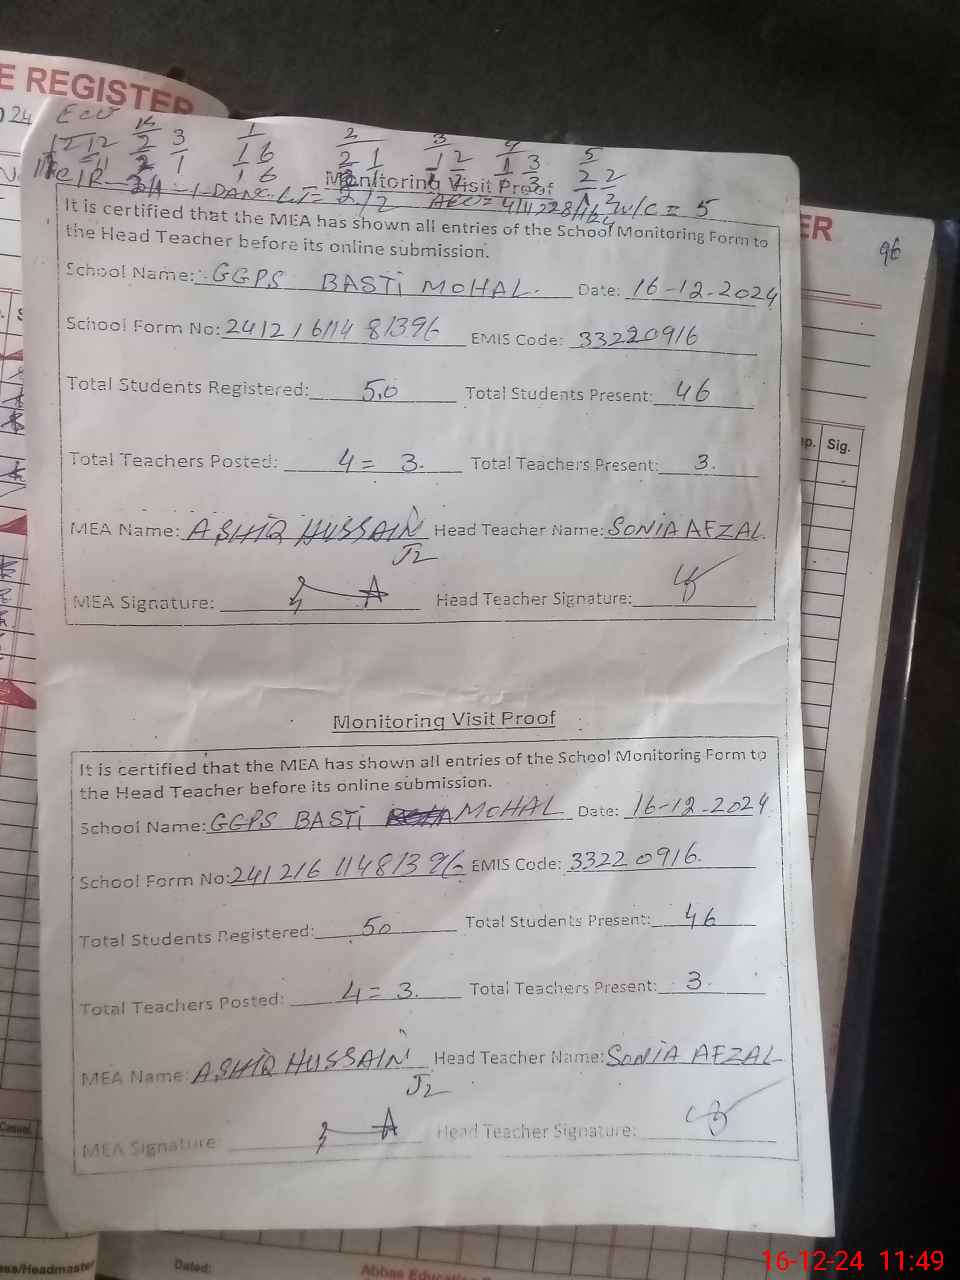 E REGISTER
ER
96
Monitoring Visit Proof
It is certified that the MEA has shown all entries of the School Monitoring Form to
the Head Teacher before its online submission.
School Name: GGPS BASTi MOHAL. Date: 16-12-2024
School Form No: 241216114 81396 EMIS Code: 33220916
Total Students Registered: 50 Total Students Present: 46
Total Teachers Posted: 4 = 3. Total Teachers Present: 3.
MEA Name: ASHIQ HUSSAIN Head Teacher Name: SONIA AFZAL.
J2
MEA Signature: Head Teacher Signature:
p. Sig.
Monitoring Visit Proof
It is certified that the MEA has shown all entries of the School Monitoring Form to
the Head Teacher before its online submission.
School Name: GGPS BASTi MOHAL Date: 16-12-2024
School Form No: 241216 11481396 EMIS Code: 33220916.
Total Students Registered: 50 Total Students Present: 46
Total Teachers Posted: 4 = 3. Total Teachers Present: 3.
MEA Name: ASHIQ HUSSAIN Head Teacher Name: SONIA AFZAL
J2
MEA Signature Head Teacher Signature:
Casual
ss/Headmaster Dated: Abbas Education
16-12-24 11:49